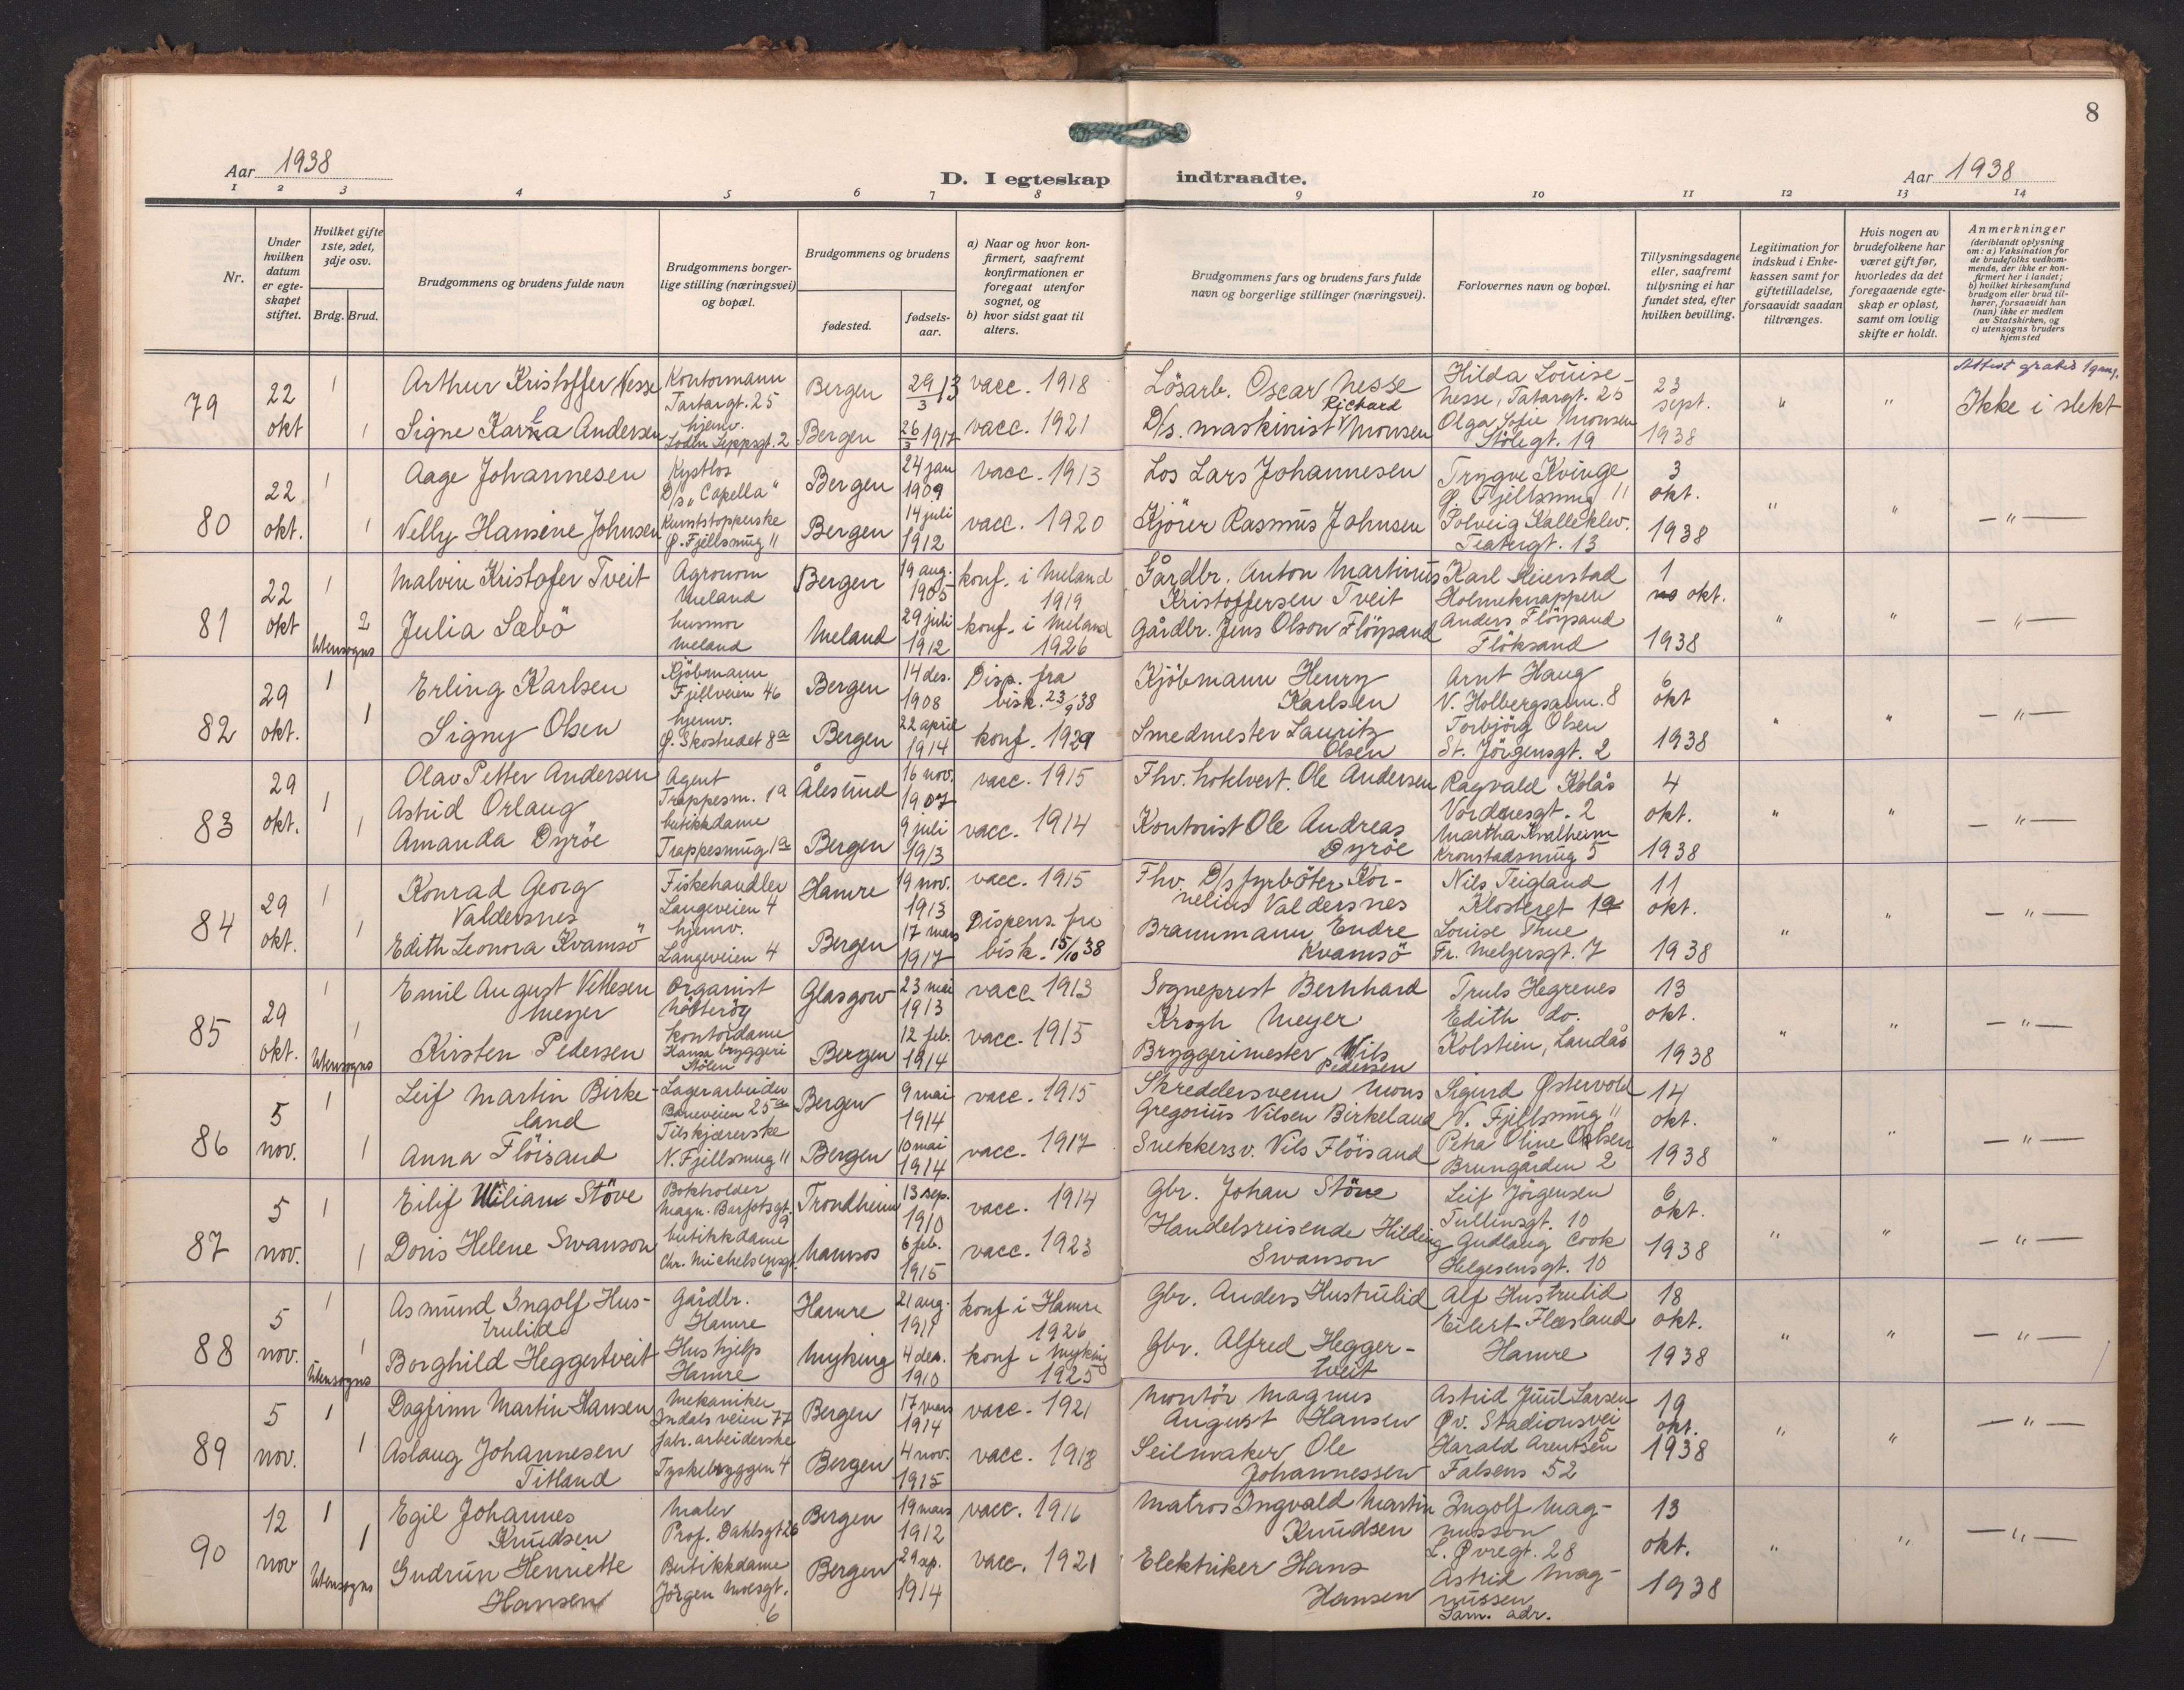 8
Aar 1938
D. I egteskap indtraadte.
Aar 1938
1 2 3 4 5 6 7 8 9 10 11 12 13 14
Nr.
Under hvilken datum er egteskapet stiftet.
Hvilket gifte 1ste, 2det, 3dje osv.
Brdg. Brud.
Brudgommens og brudens fulde navn
Brudgommens borgerlige stilling (næringsvei) og bopæl.
Brudgommens og brudens
fødested.
fødselsaar.
a) Naar og hvor konfirmert, saafremt konfirmationen er foregaat utenfor sognet, og
b) hvor sidst gaat til alters.
Brudgommens fars og brudens fars fulde navn og borgerlige stillinger (næringsvei).
Forlovernes navn og bopæl.
Tillysningsdagene eller, saafremt tillysning ei har fundet sted, efter hvilken bevilling.
Legitimation for indskud i Enkekassen samt for giftetilladelse, forsaavidt saadan tiltrænges.
Hvis nogen av brudefolkene har været gift før, hvorledes da det foregaaende egteskap er opløst, samt om lovlig skifte er holdt.
Anmerkninger
(deriblandt oplysning om: a) Vaksination for de brudefolks vedkommende, der ikke er konfirmert her i landet; b) hvilket kirkesamfund brudgom eller brud tilhører, forsaavidt han (hun) ikke er medlem av Statskirken, og c) utensogns bruders hjemsted
Attest gratis 1 gang.
79 22 okt 1 Arthur Kristoffer Nesse Kontormann Tartargt. 25 Bergen 29/3 13 vacc. 1918 Lösarb. Oscar Nesse Hilda Louise Nesse, Tatargt. 25 23 sept. 1938 " " Ikke i slekt
1 Signe Karla Andersen hjemv. Lodin Leppsgt. 2 Bergen 26/3 1917 vacc. 1921 D/s. maskinist Richard Monsen Olga Sofie Monsen Stölegt. 19
80 22 okt. 1 Aage Johannesen Kystlos D/s „Capella" Bergen 24 jan 1909 vacc. 1913 Los Lars Johannesen Trygve Kvinge Ø. Fjellsmug 11 3 okt. 1938 " " — " —
1 Nelly Hansine Johnsen Kunststopperske Ø. Fjellsmug 11 Bergen 14 juli 1912 vacc. 1920 Kjörer Rasmus Johnsen Solveig Kalleklev. Teatergt. 13
81 22 okt Utensogns 1 Malvin Kristofer Tveit Agronom Meland Bergen 19 aug. 1905 konf. i Meland 1919 Gårdbr. Anton Martinus Kristoffersen Tveit Karl Meierstad Holmeknappen 1 okt. 1938 " " — " —
2 Julia Sæbö husmor Meland Meland 29 juli 1912 konf. i Meland 1926 Gårdbr. Jens Olson Flöysand Anders Flöysand Flöksand
82 29 okt. 1 Erling Karlsen Kjöbmann Fjellveien 46 Bergen 14 des. 1908 Disp. fra bisk. 23/9 38 Kjöbmann Henry Karlsen Arnt Haug V. Holbergsalm. 8 6 okt 1938 " " — " —
1 Signy Olsen hjemv. Ø. Skostredet 8a Bergen 22 april 1914 konf. 1929 Smedmester Lauritz Olsen Torbjörg Olsen St. Jörgensgt. 2
83 29 okt. 1 Olav Petter Andersen Agent Trappesm. 1a Ålesund 16 nov. 1907 vacc. 1915 Fhv. hotelvert. Ole Andersen Ragvald Kolås Vordnesgt. 2 4 okt. 1938 " " — " —
1 Astrid Orlaug Amanda Dyröe butikkdame Trappesmug 1a Bergen 9 juli 1913 vacc. 1914 Kontorist Ole Andreas Dyröe Martha Kvalheim Kronstadsmug 5
84 29 okt. 1 Konrad Georg Valdersnes Fiskehandler Langeveien 4 Hamre 19 nov. 1913 vacc. 1915 Fhv. D/s fyrböter Kornelius Valdersnes Nils Teigland Klosteret 1a 11 okt. 1938 " " — " —
1 Edith Leonora Kvamsö hjemv. Langeveien 4 Bergen 17 mars 1917 Dispens. fra bisk. 15/10 38 Brannmann Endre Kvamsö Louise Thue Fr. Melzersgt. 7
85 29 okt. Utensogns 1 Emil August Vettesen Meyer Organist Nötteröy Glasgow 23 mai 1913 vacc. 1913 Sogneprest Bernhard Krogh Meyer Truls Hegrenes 13 okt. 1938 " " — " —
1 Kirsten Pedersen kontordame Hansa bryggeri Stölen Bergen 12 feb. 1914 vacc. 1915 Bryggerimester Nils Pedersen Edith do. Kolstien, Landås
86 5 nov. 1 Leif Martin Birkeland Lagerarbeider Baneveien 25a Bergen 9 mai 1914 vacc. 1915 Skreddersvenn Mons Gregorius Nilsen Birkeland Sigurd Østervold N. Fjellsmug 11 14 okt. 1938 " " — " —
1 Anna Flöisand Tilskjærerske N. Fjellsmug 11 Bergen 10 mai 1914 vacc. 1917 Snekkersv. Nils Flöisand Petra Oline Olsen Brungården 2
87 5 nov. 1 Eilif Wilian Stöve Bokholder Magn. Barfotsgt. 9 Trondheim 13 sep. 1910 vacc. 1914 Gbr. Johan Stöve Leif Jörgensen Tullinsgt. 10 6 okt. 1938 " " — " —
1 Doris Helene Swanson butikkdame Chr. Michelsensgt. 6 Namsos 6 feb. 1915 vacc. 1923 Handelsreisende Hilding Swanson Gudlaug Cook Helgesensgt. 10
88 5 nov. Utensogns 1 Asmund Ingolf Hustrulid Gårdbr. Hamre Hamre 21 aug. 1911 konf i Hamre 1926 Gbr. Anders Hustrulid Alf Hustrulid 18 okt. 1938 " " — " —
1 Borghild Heggertveit Hushjelp Hamre Myking 4 des. 1910 konf i Myking 1925 Gbr. Alfred Heggertveit Eilert Flæsland Hamre
89 5 nov. 1 Dagfinn Martin Hansen Mekaniker Indalsveien 77 Bergen 17 mars 1914 vacc. 1921 Montör Magnus August Hansen Astrid Juul Larsen Øv. Stadionsvei 15 19 okt. 1938 " " — " —
1 Aslaug Johannesen Titland fabr. arbeiderske Tyskebryggen 4 Bergen 4 nov. 1915 vacc. 1918 Seilmaker Ole Johannessen Harald Arentsen Falsens 52
90 12 nov Utensogns 1 Egil Johannes Knudsen Maler Prof. Dahlsgt 26 Bergen 19 mars 1912 vacc. 1916 Matros Ingvald Martin Knudsen Ingolf Magnusson L. Øvregt. 28 13 okt. 1938 " " — " —
1 Gudrun Henriette Hansen Butikkdame Jörgen Moesgt. 6 Bergen 29 sp. 1914 vacc. 1921 Elektriker Hans Hansen Astrid Magnussen Sam. adr.